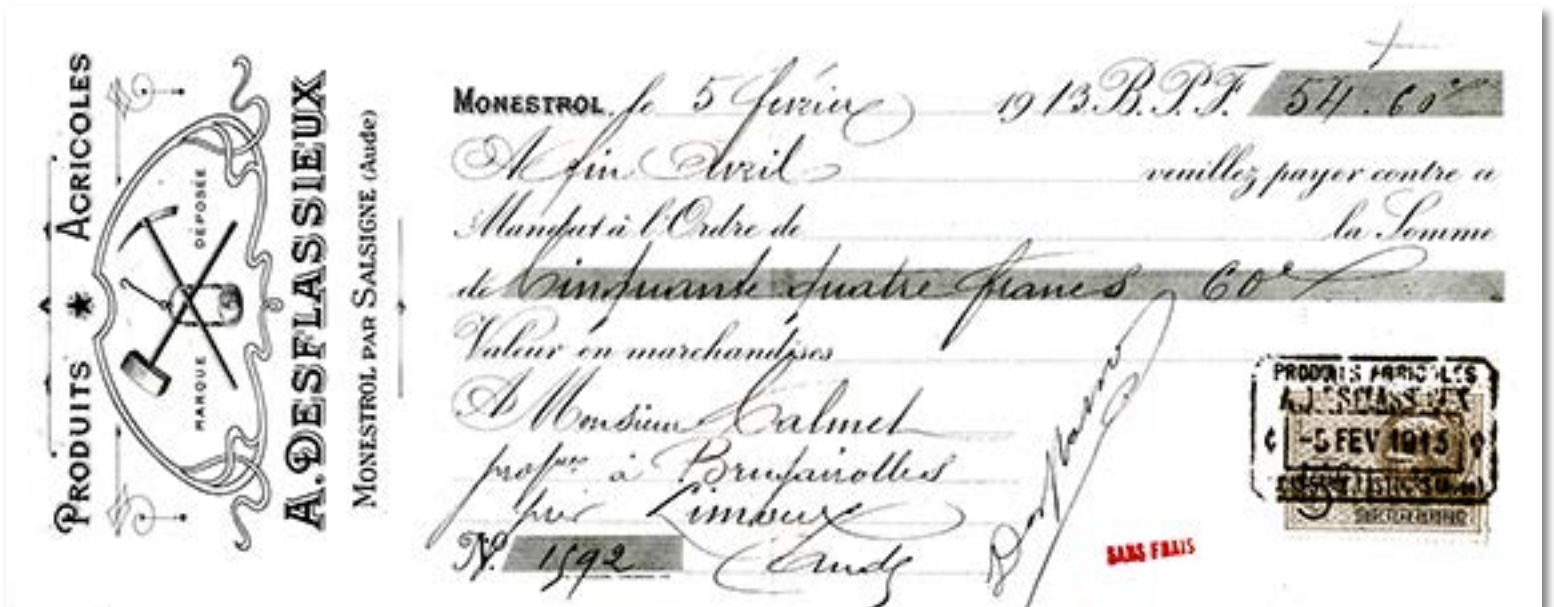 PRODUITS * AGRICOLES
MARQUE DÉPOSÉE
A. DESFLASSIEUX
MONESTROL PAR SALSIGNE (Aude)
MONESTROL, le 5 février 1913. B.P.F. 54.60c
A fin Avril veuillez payer contre ce
Mandat à l'Ordre de la Somme
de Cinquante quatre francs 60c
Valeur en marchandises
A Monsieur Calmet
propre à Brugairolles
par Limoux
N. 1592 (Aude)
SANS FRAIS
PRODUITS AGRICOLES
A. DESFLASSIEUX
-5 FEV 1913